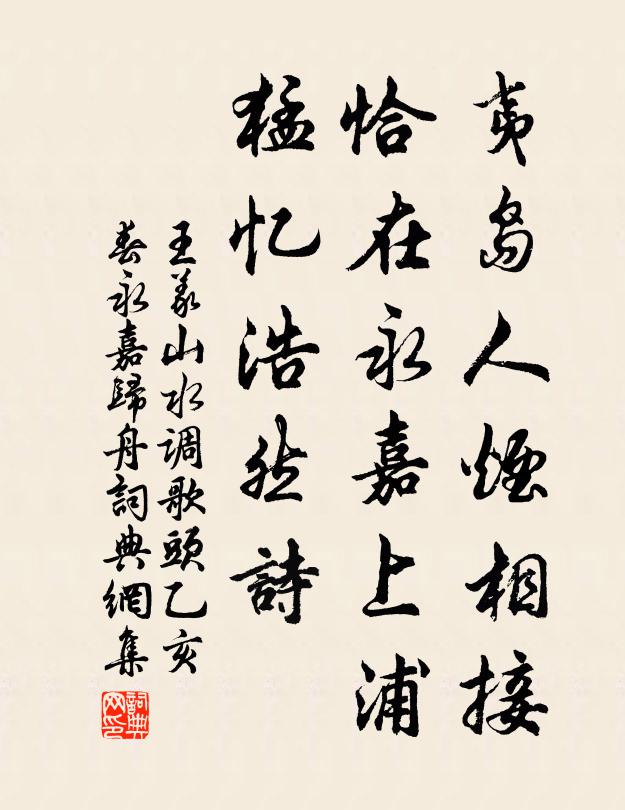 夷岛人煙相接
恰在永嘉上浦
猛忆浩然詩
王義山水调歌頭乙亥
春永嘉歸舟詞典網集
詞典网印